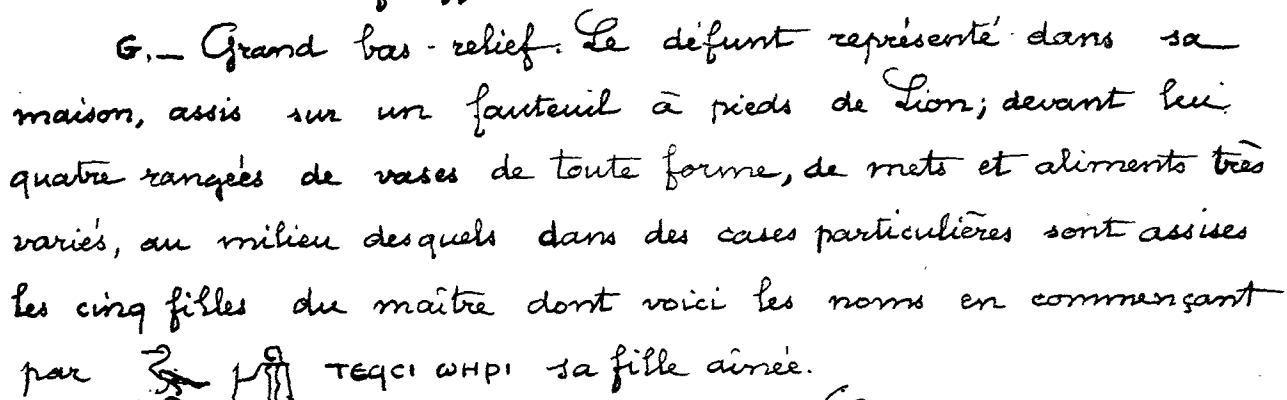 G._ Grand bas-relief. Le défunt représenté dans sa
maison, assis sur un fauteuil à pieds de Lion; devant lui
quatre rangées de vases de toute forme, de mets et aliments très
variés, au milieu desquels dans des cases particulières sont assises
les cinq filles du maître dont voici les noms en commençant
par ⲧⲉϥⲥⲓ ϣⲏⲣⲓ sa fille aînée.